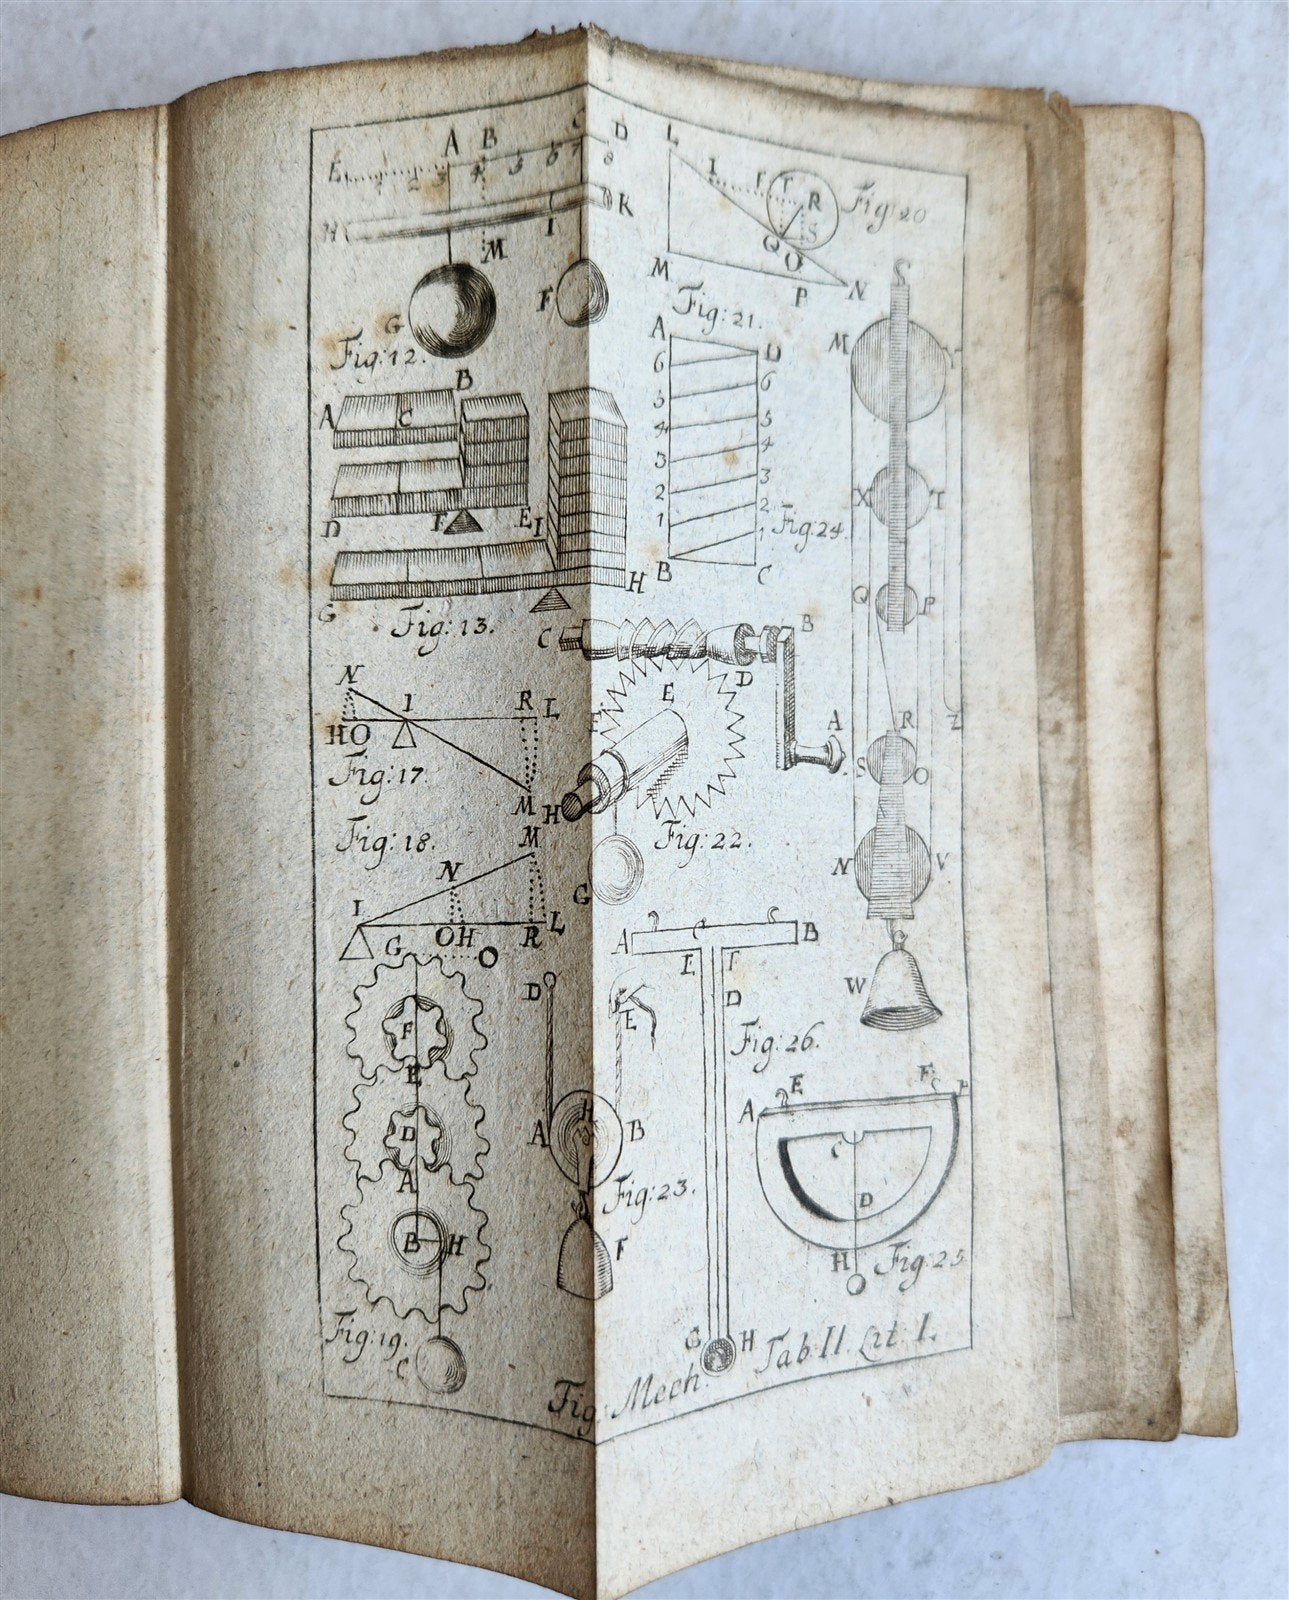 C
A B D
E 1 2 3 4 5 6 7 8
H I K
M
G F
Fig: 12.
B
A C
D F E I
G H
Fig: 13.
N
I R L
H O
Fig: 17.
M
Fig: 18.
M
N
I
G O H R L
O
F
E
D
A
B H
Fig: 19.
C
L
I F T R
Fig: 20
Q S
O
M P N
Fig: 21.
A D
6 6
5 5
4 4
3 3
2 2
1 1
B C
Fig. 24.
S
M Y
X T
Q P
R Z
S O
N V
W
C B
D
E
F A
H
Fig: 22.
G
D E
A H B
Fig: 23.
F
A B
E F
D
Fig: 26.
G H
E F
A
C
D
H
Fig: 25
Fig: Mech. Tab. II. Lit: I.